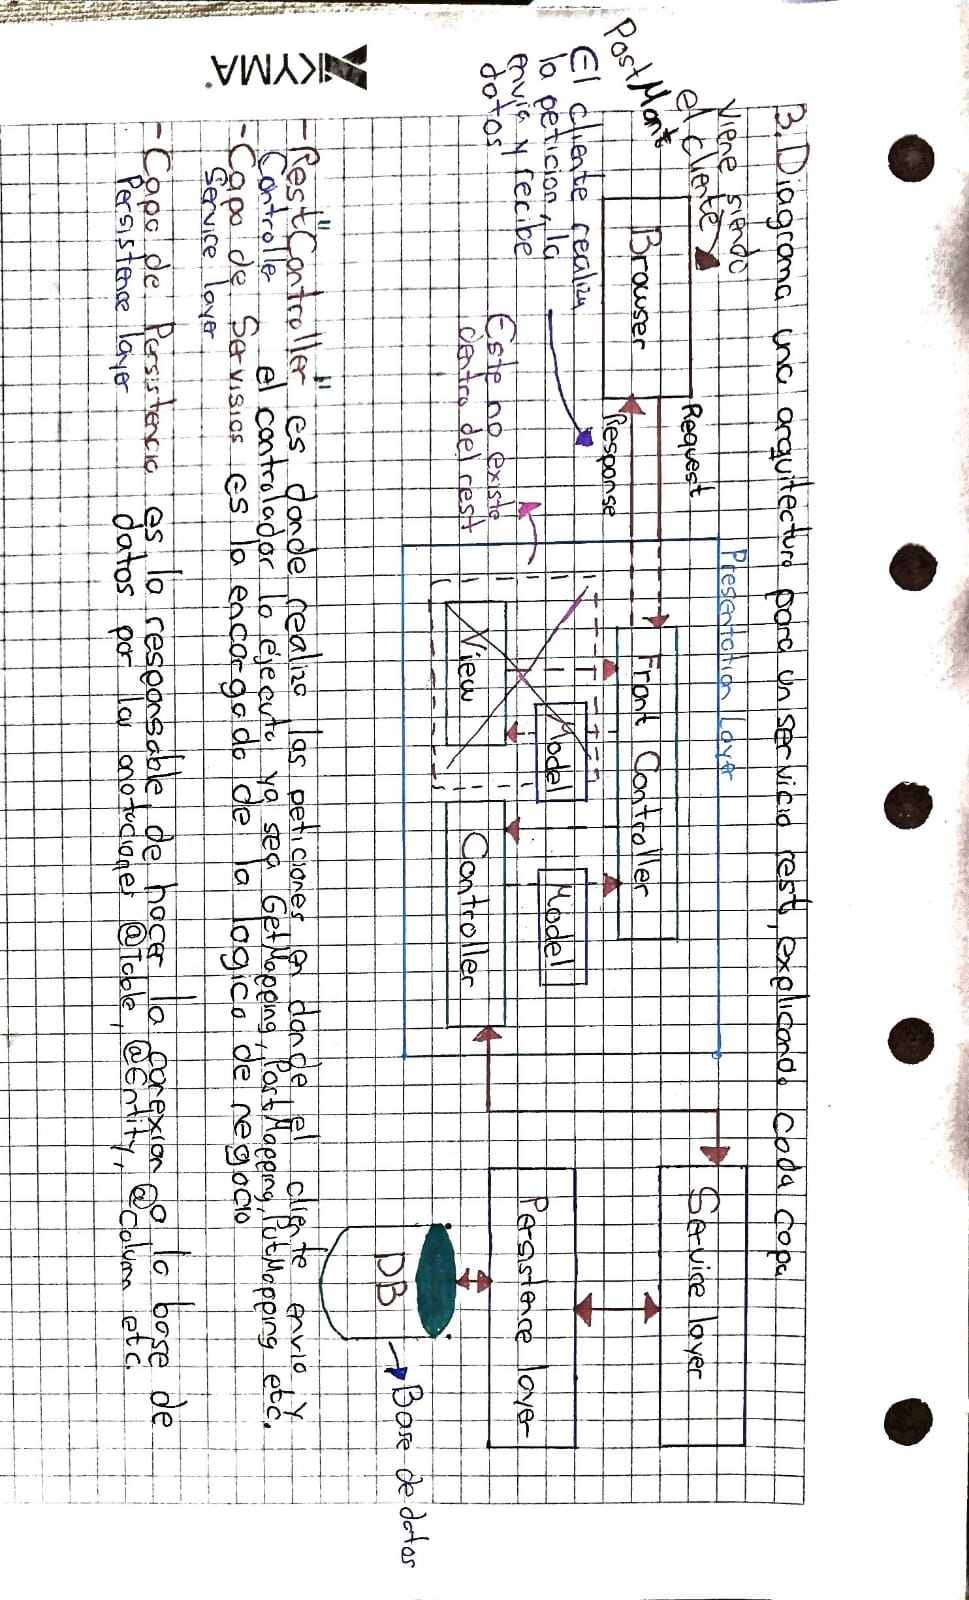 3. Diagrama una arquitectura para un servicio rest, explicando cada capa
Viene siendo
el cliente
PostMant
El cliente realiza
la peticion, la
envia y recibe
datos
Browser
Request
Response
Presentation Layer
Front Controller
Model
Model
View
Controller
Este no existe
dentro del rest
Service layer
Persistence layer
DB
Base de datos
- Rest "Controller" es donde realizo las peticiones en donde el cliente envia y
Controlle el controlador lo ejecuta ya sea GetMapping, PostMapping, PutMapping etc.
- Capa de Servisios es la encargada de la logica de negocio
Service layer
- Capa de Persistencia es la responsable de hacer la conexion a la base de
Persistence layer datos por las anotaciones @Table, @Entity, @Colum etc.
KYMA